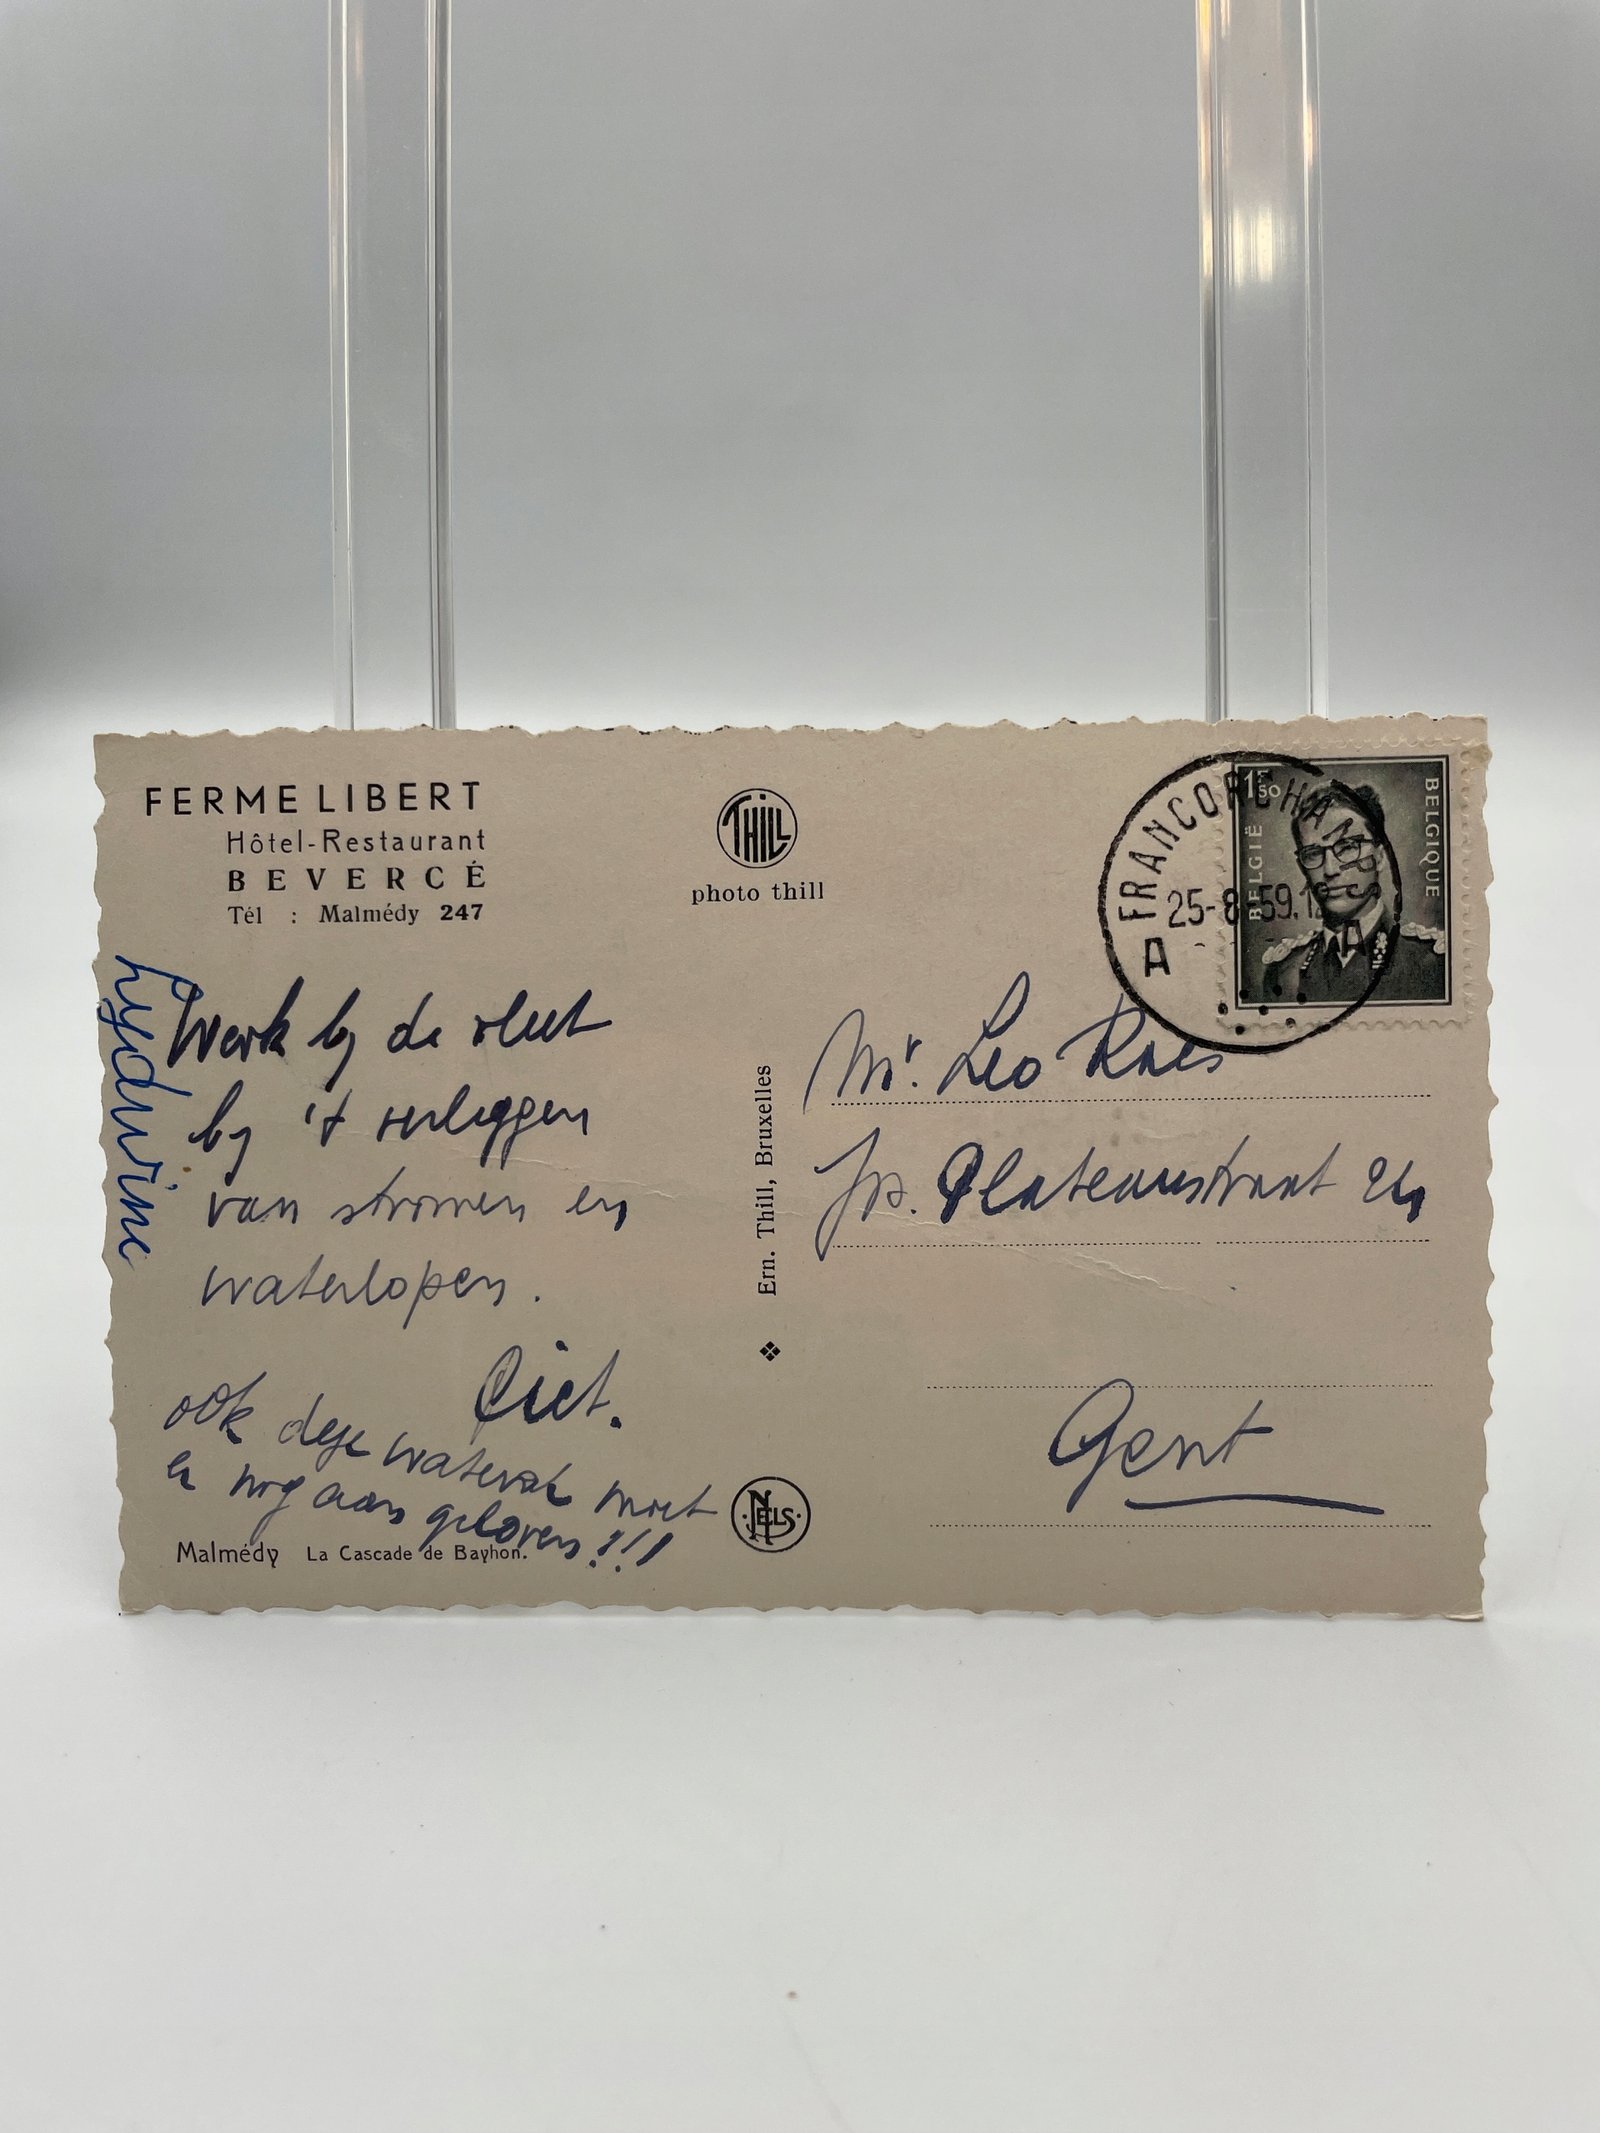 FERME LIBERT
Hôtel-Restaurant
BEVERCÉ
Tél : Malmédy 247
THILL
photo thill
1F50
BELGIË
BELGIQUE
FRANCORCHAMPS
25-8-59.12
A A
Lydwine
Werk bij de vleet
bij 't verleggen
van stromen en
waterlopen.
Piet.
ook deze waterval moet
er nog aan geloven!!!
Malmédy La Cascade de Bayhon.
Ern. Thill, Bruxelles
NELS
Mr. Leo Raes
Jos. Plateaustraat
Gent